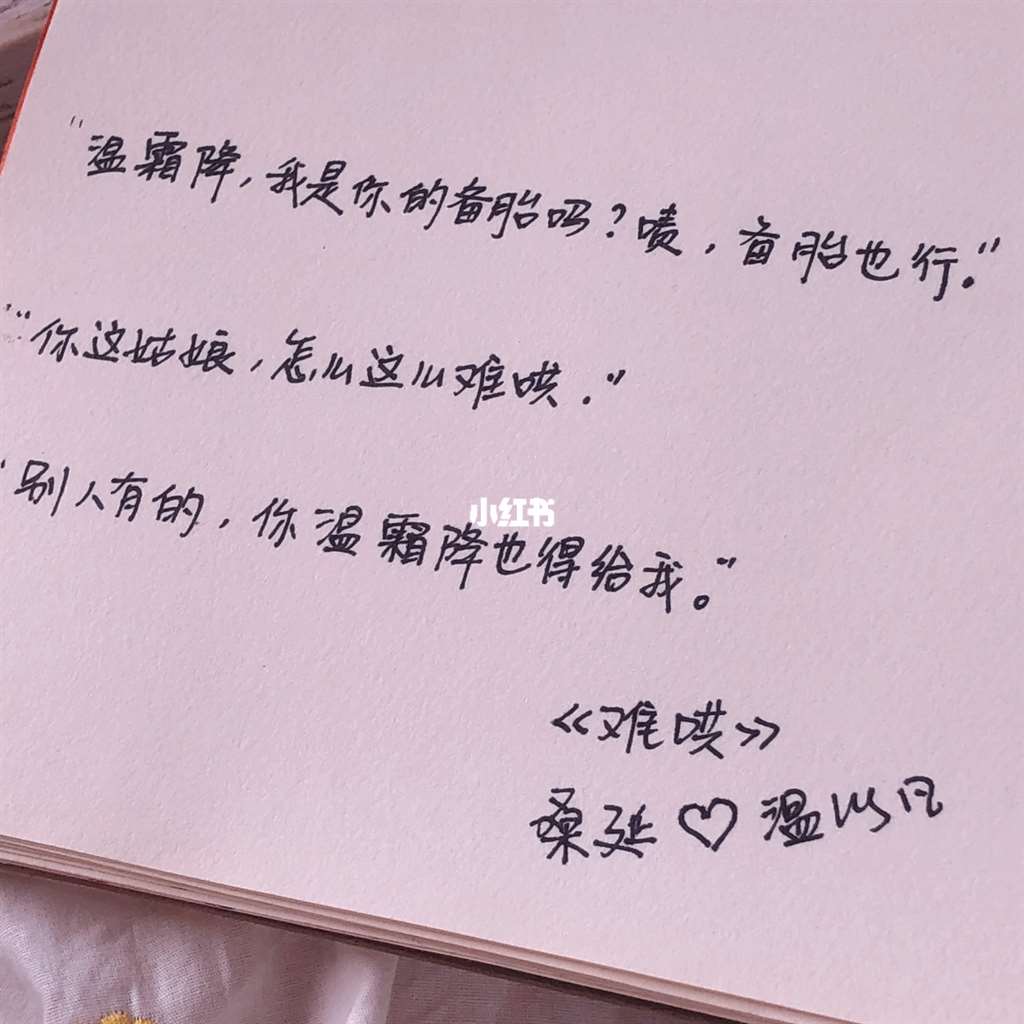 "温霜降,我是你的备胎吗?啧,备胎也行。"
"你这姑娘,怎么这么难哄."
"别人有的,你温霜降也得给我。"
小红书
《难哄》
桑延♡温以凡